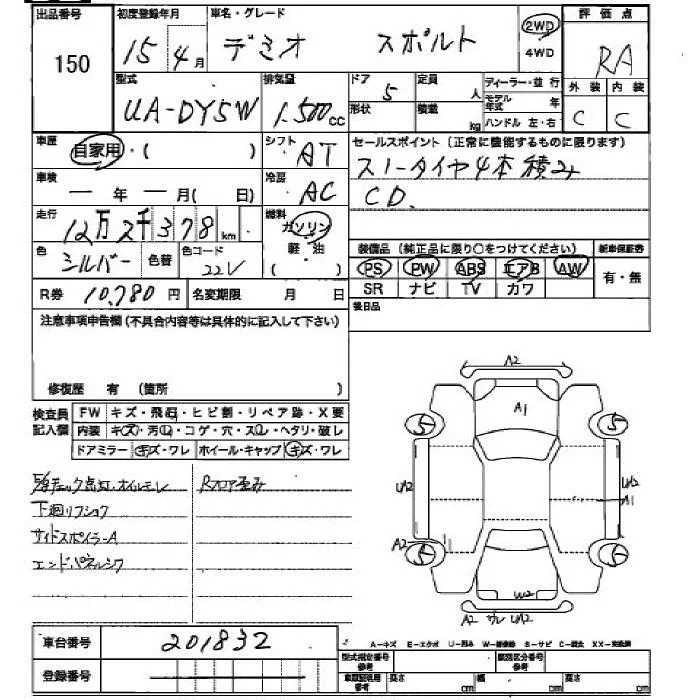 出品番号 初度登録年月 車名・グレード 2WD 評価点
150 15 4月 デミオ スポルト 4WD RA
型式 排気量 ドア 定員 ディーラー・並行 外装 内装
UA-DY5W 1,500cc 5 人 モデル年式 年
形状 積載 kg ハンドル 左・右 C C
車歴 自家用・( ) シフト AT セールスポイント(正常に機能するものに限ります)
スノータイヤ4本積み
車検 ー年 ー月( 日) 冷房 AC CD.
走行 12万2千378km 燃料 ガソリン
軽・油
( )
色 シルバー 色替 色コード 22V 装備品(純正品に限り○をつけてください) 新車保証書
PS PW ABS エアB AW 有・無
R券 10,780円 名変期限 月 日 SR ナビ TV カワ
注意事項申告欄(不具合内容等は具体的に記入して下さい) 後日品
修復歴 有 (箇所 )
検査員記入欄 FW キズ・飛石・ヒビ割・リペア跡・X要
内装 キズ・汚れ・コゲ・穴・スレ・ヘタリ・破レ
ドアミラー キズ・ワレ ホイール・キャップ キズ・ワレ
チェック点灯・オイルモレ Rフロア歪み
下廻リフショク
サイドスポイラーA
エンドパネルシワ
A2
A1
5 5
UA2 UA2
A1
A2 1
5 5
W2
A2 ワレ UA2
車台番号 201832
登録番号
A-キズ E-エクボ U-凹み W-補修跡 S-サビ C-腐食 XX-交換済
型式指定番号 参考 類別区分番号 参考
車庫証明用 参考 長さ cm 幅 cm 高さ cm